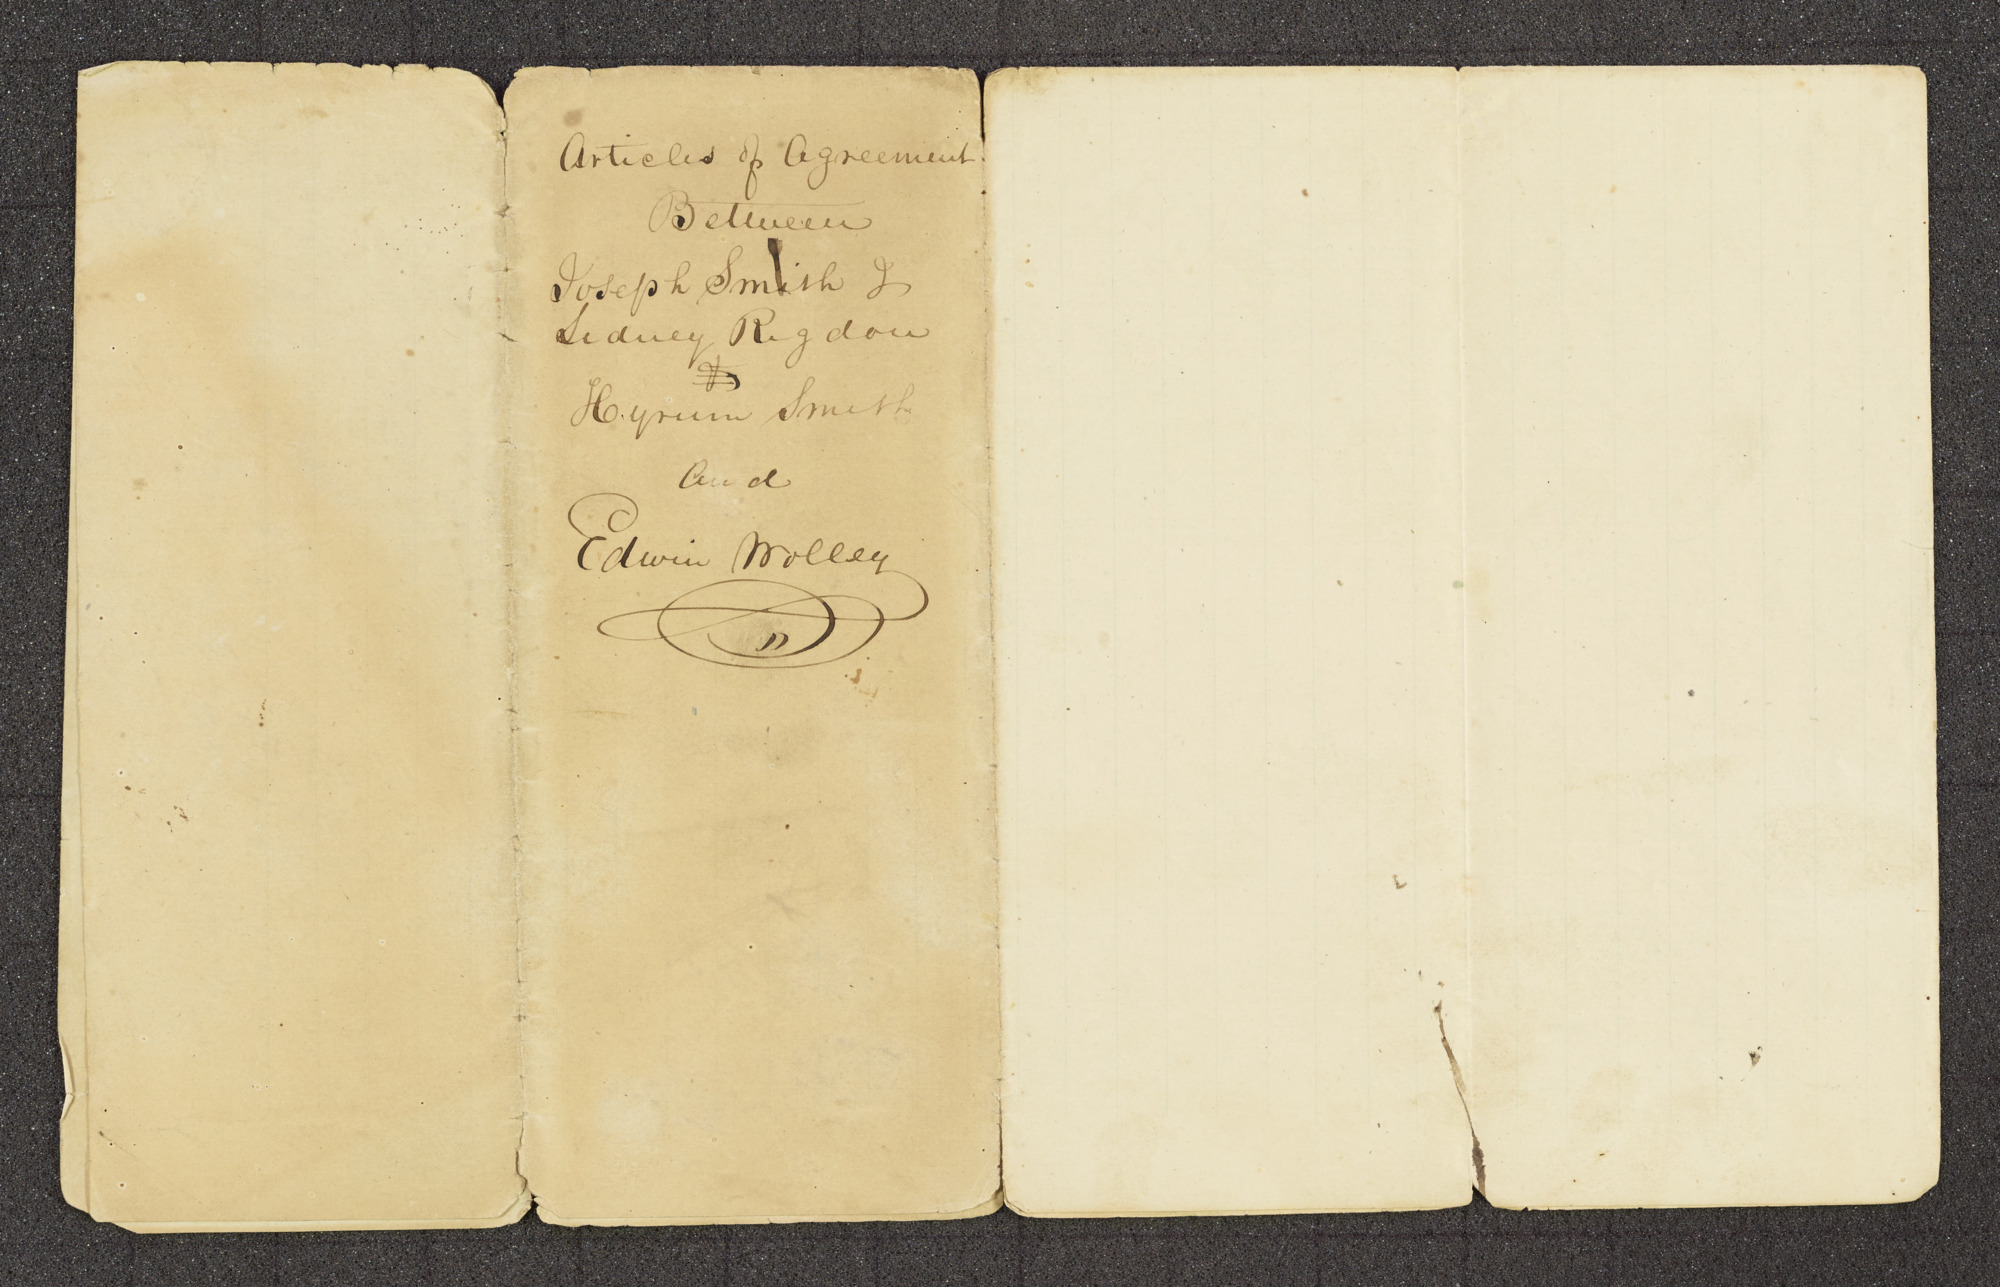 Articles of Agreement.
Between
Joseph Smith J
Sidney Rigdon
&
Hyrum Smith
And
Edwin Wolley